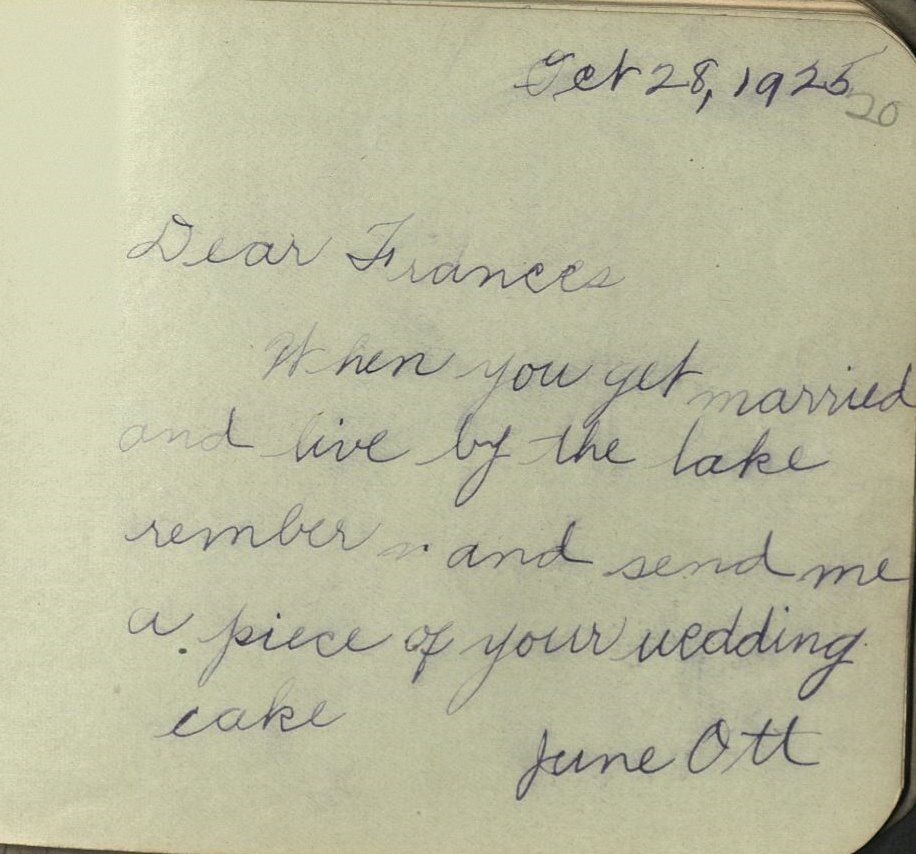 Oct 28, 1925
20
Dear Frances
When you get married
and live by the lake
rember and send me
a piece of your wedding
cake
June Ott